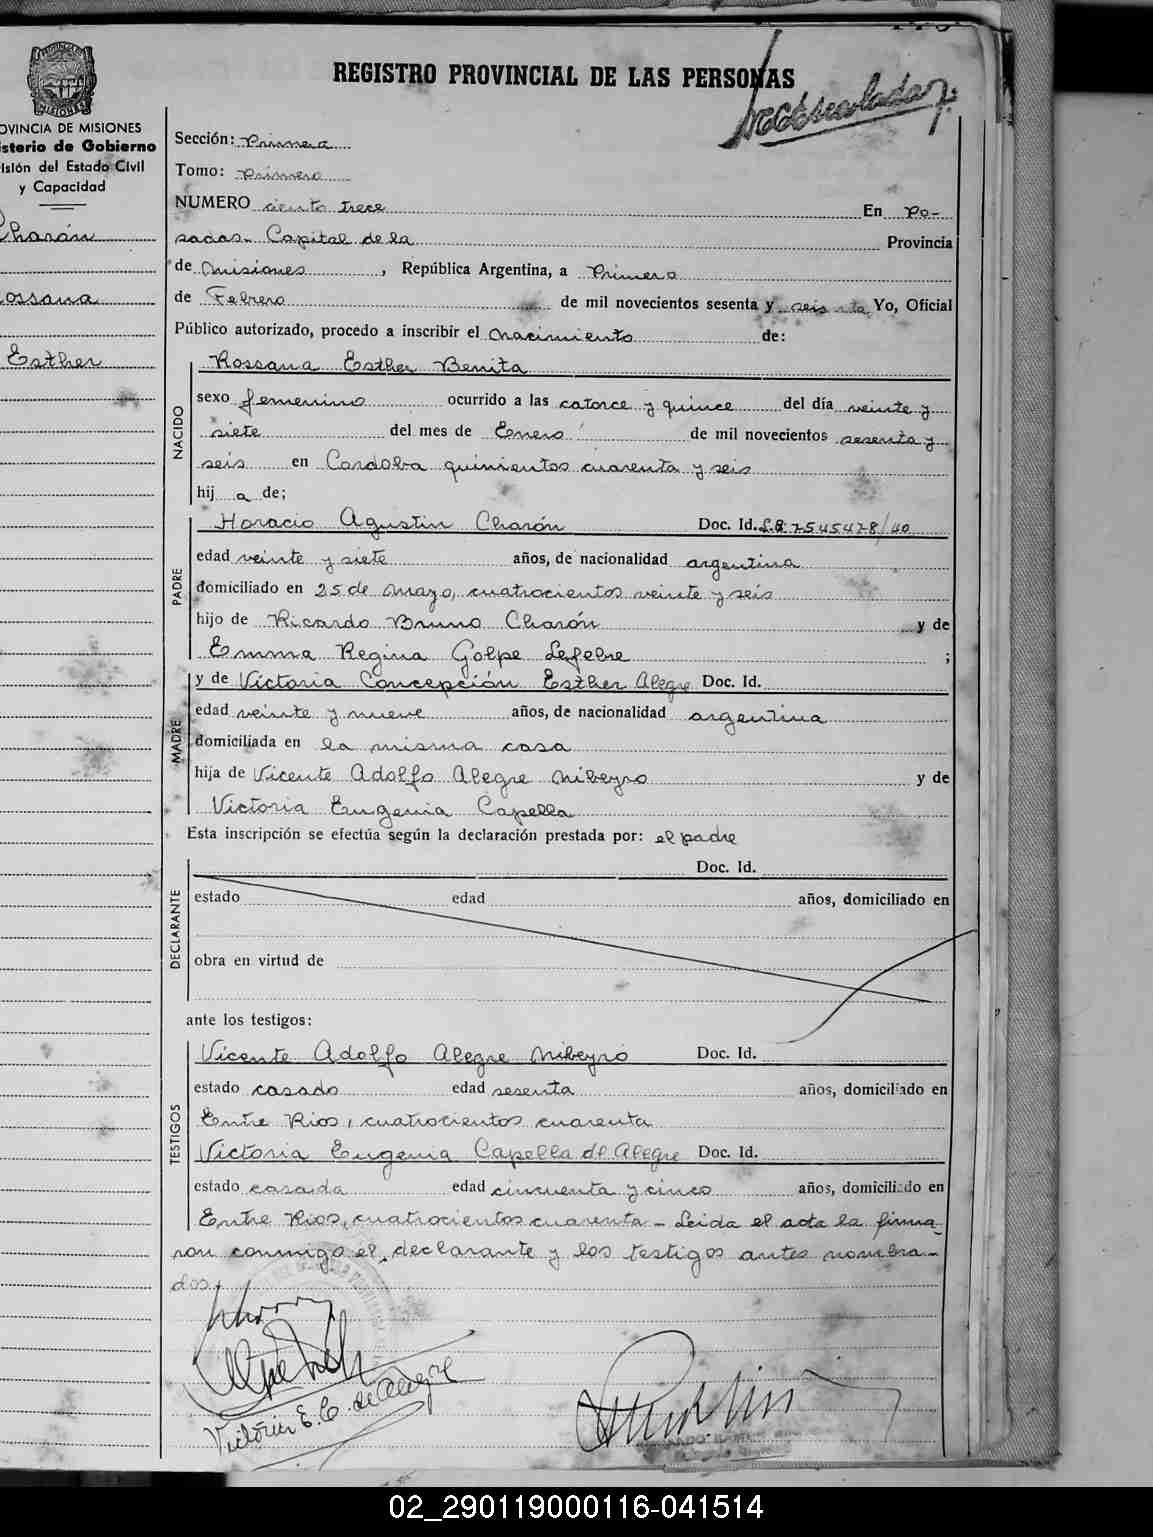 REGISTRO PROVINCIAL DE LAS PERSONAS
OVINCIA DE MISIONES
isterio de Gobierno
isión del Estado Civil
y Capacidad
Charón
ossana
Esther
Sección: Primera
Tomo: Primero
NUMERO ciento trece En Po-
sadas- Capital de la Provincia
de Misiones, República Argentina, a Primero
de Febrero de mil novecientos sesenta y seis Yo, Oficial
Público autorizado, procedo a inscribir el nacimiento de:
NACIDO
Rossana Esther Benita
sexo femenino ocurrido a las catorce y quince del día veinte y
siete del mes de Enero de mil novecientos sesenta y
seis en Cordoba quinientos cuarenta y seis
hij a de;
PADRE
Horacio Agustin Charón Doc. Id. 7545428/40
edad veinte y siete años, de nacionalidad argentina
domiciliado en 25 de Mayo, cuatrocientos veinte y seis
hijo de Ricardo Bruno Charón y de
Emma Regina Golpe Lefebre ;
MADRE
y de Victoria Concepción Esther Alegre Doc. Id.
edad veinte y nueve años, de nacionalidad argentina
domiciliada en la misma casa
hija de Vicente Adolfo Alegre Nibeyro y de
Victoria Eugenia Capella
Esta inscripción se efectúa según la declaración prestada por: el padre
DECLARANTE
Doc. Id.
estado edad años, domiciliado en
obra en virtud de
ante los testigos:
TESTIGOS
Vicente Adolfo Alegre Nibeyro Doc. Id.
estado casado edad sesenta años, domiciliado en
Entre Rios, cuatrocientos cuarenta
Victoria Eugenia Capella de Alegre Doc. Id.
estado casada edad cincuenta y cinco años, domiciliado en
Entre Rios, cuatrocientos cuarenta - Leida el acta la firma-
ron conmigo el declarante y los testigos antes nombra-
dos.
Victoria E. C. de Alegre
02_290119000116-041514